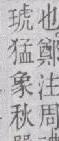 也鄭注周
琥猛象秋